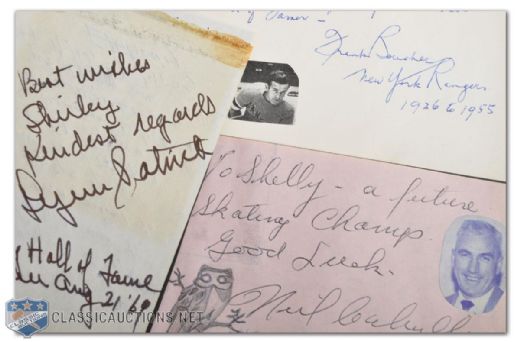 of Famer"
Frank Boucher
New York Rangers
1926 to 1955
Best wishes
Shirley
Kindest regards
Lynn Patrick
Hall of Fame
Aug 21/60
To Shelly - a future
Skating Champ.
Good Luck.
Neil
CLASSICAUCTIONS.NET